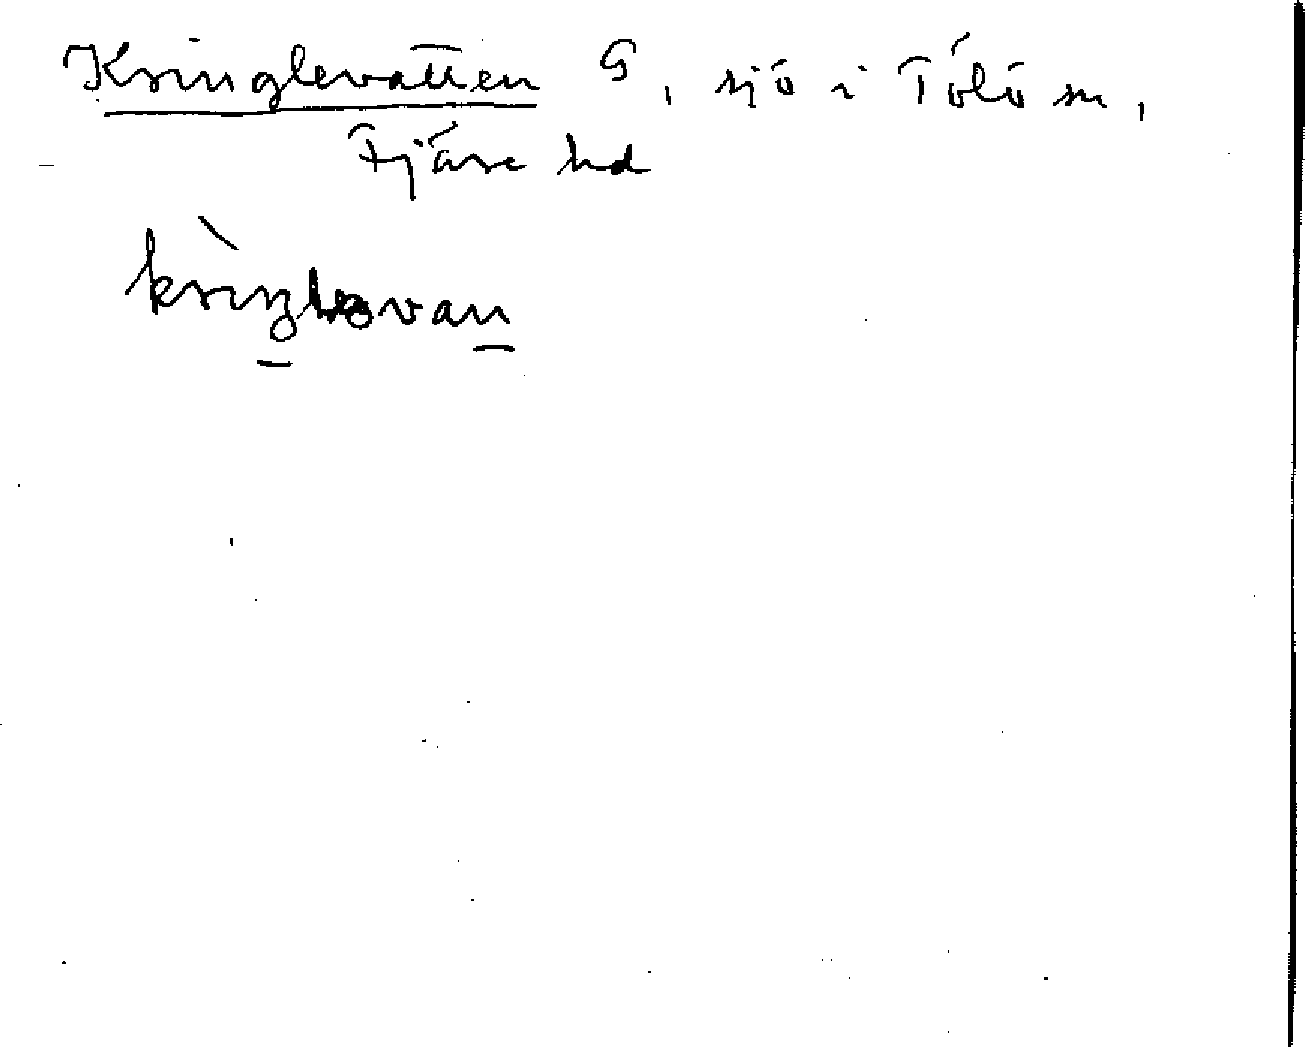 Kringlevatten G, sjö i Tölö sn,
Fjäre hd